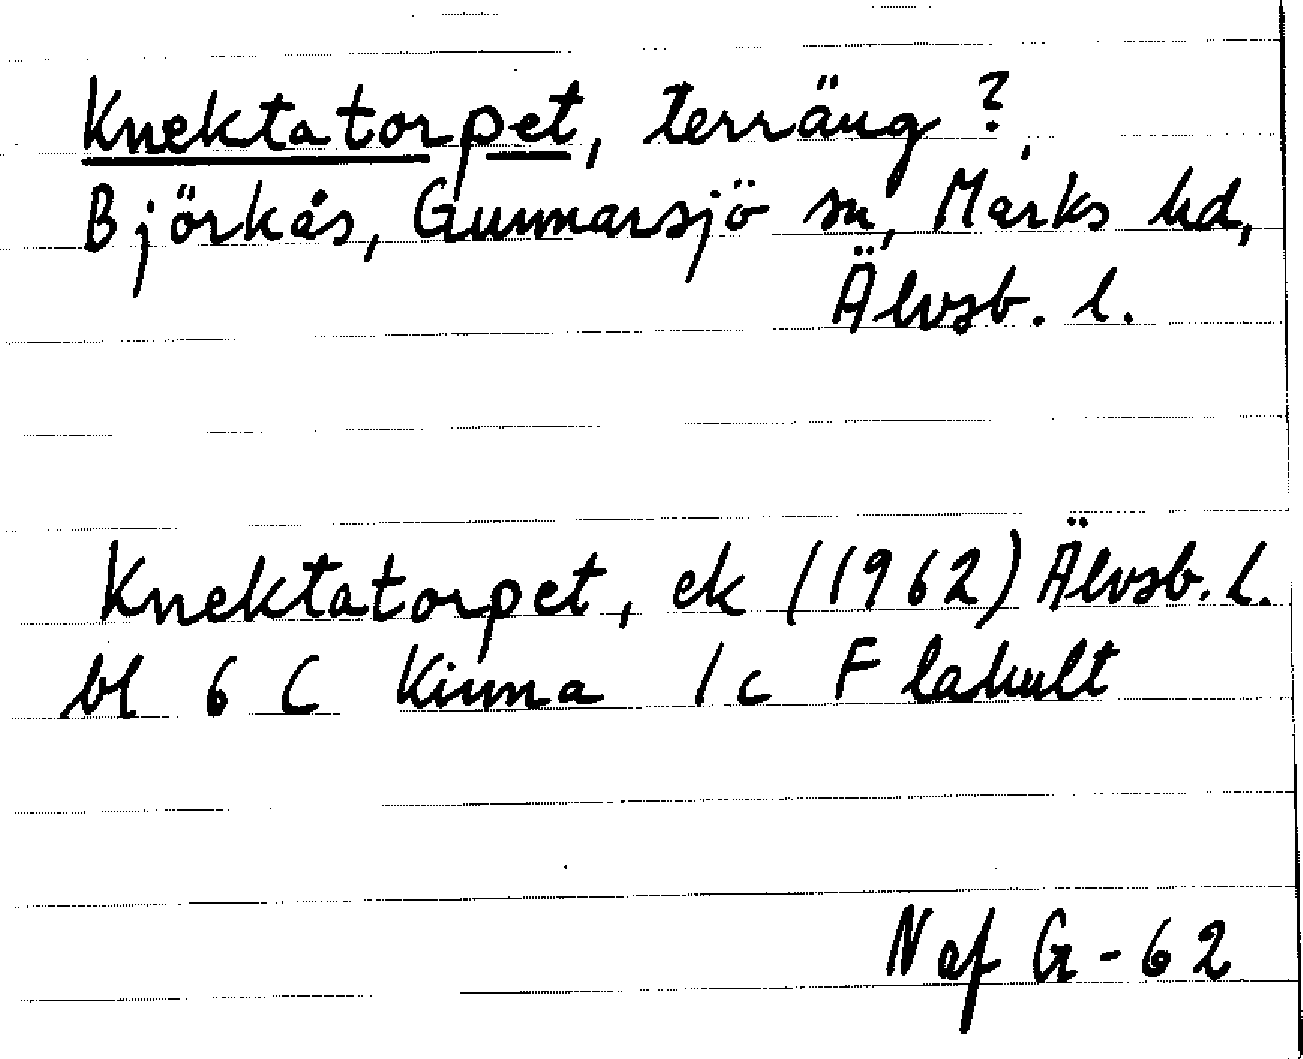 Knektatorpet, terräng?
Björkås, Gunnarsjö sn, Marks hd,
Älvsb. l.
Knektatorpet, ek (1962) Älvsb. l.
bl 6 C Kinna 1 c Flahult
N af G-62